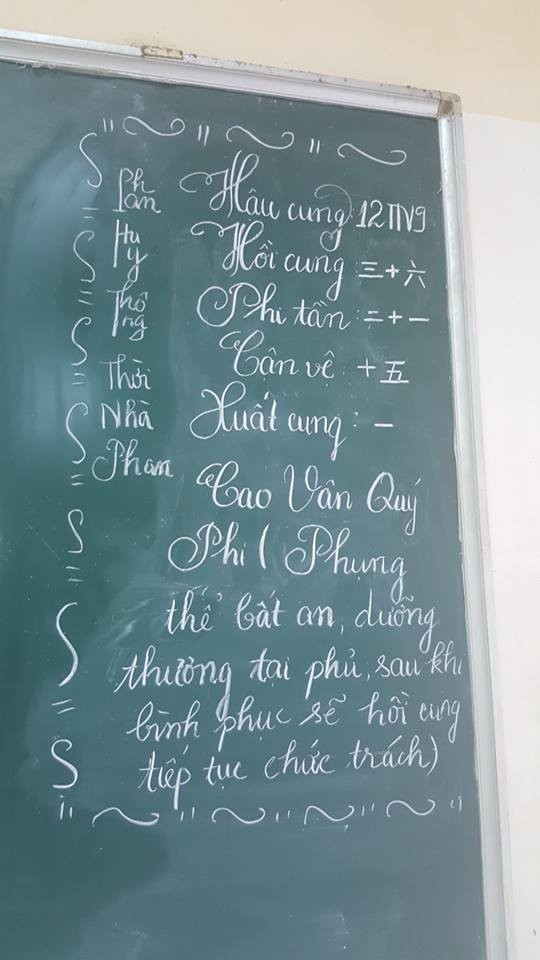 Phan
Huy
Thông
Thời
Nhà
Phan
Hậu cung: 12TN9
Hồi cung 三+六
Phi tần: 二+一
Cận vệ: +五
Xuất cung: 一
Cao Vân Quý
Phi ( Phụng
thể bất an, dưỡng
thương tại phủ, sau khi
bình phục sẽ hồi cung
tiếp tục chức trách)